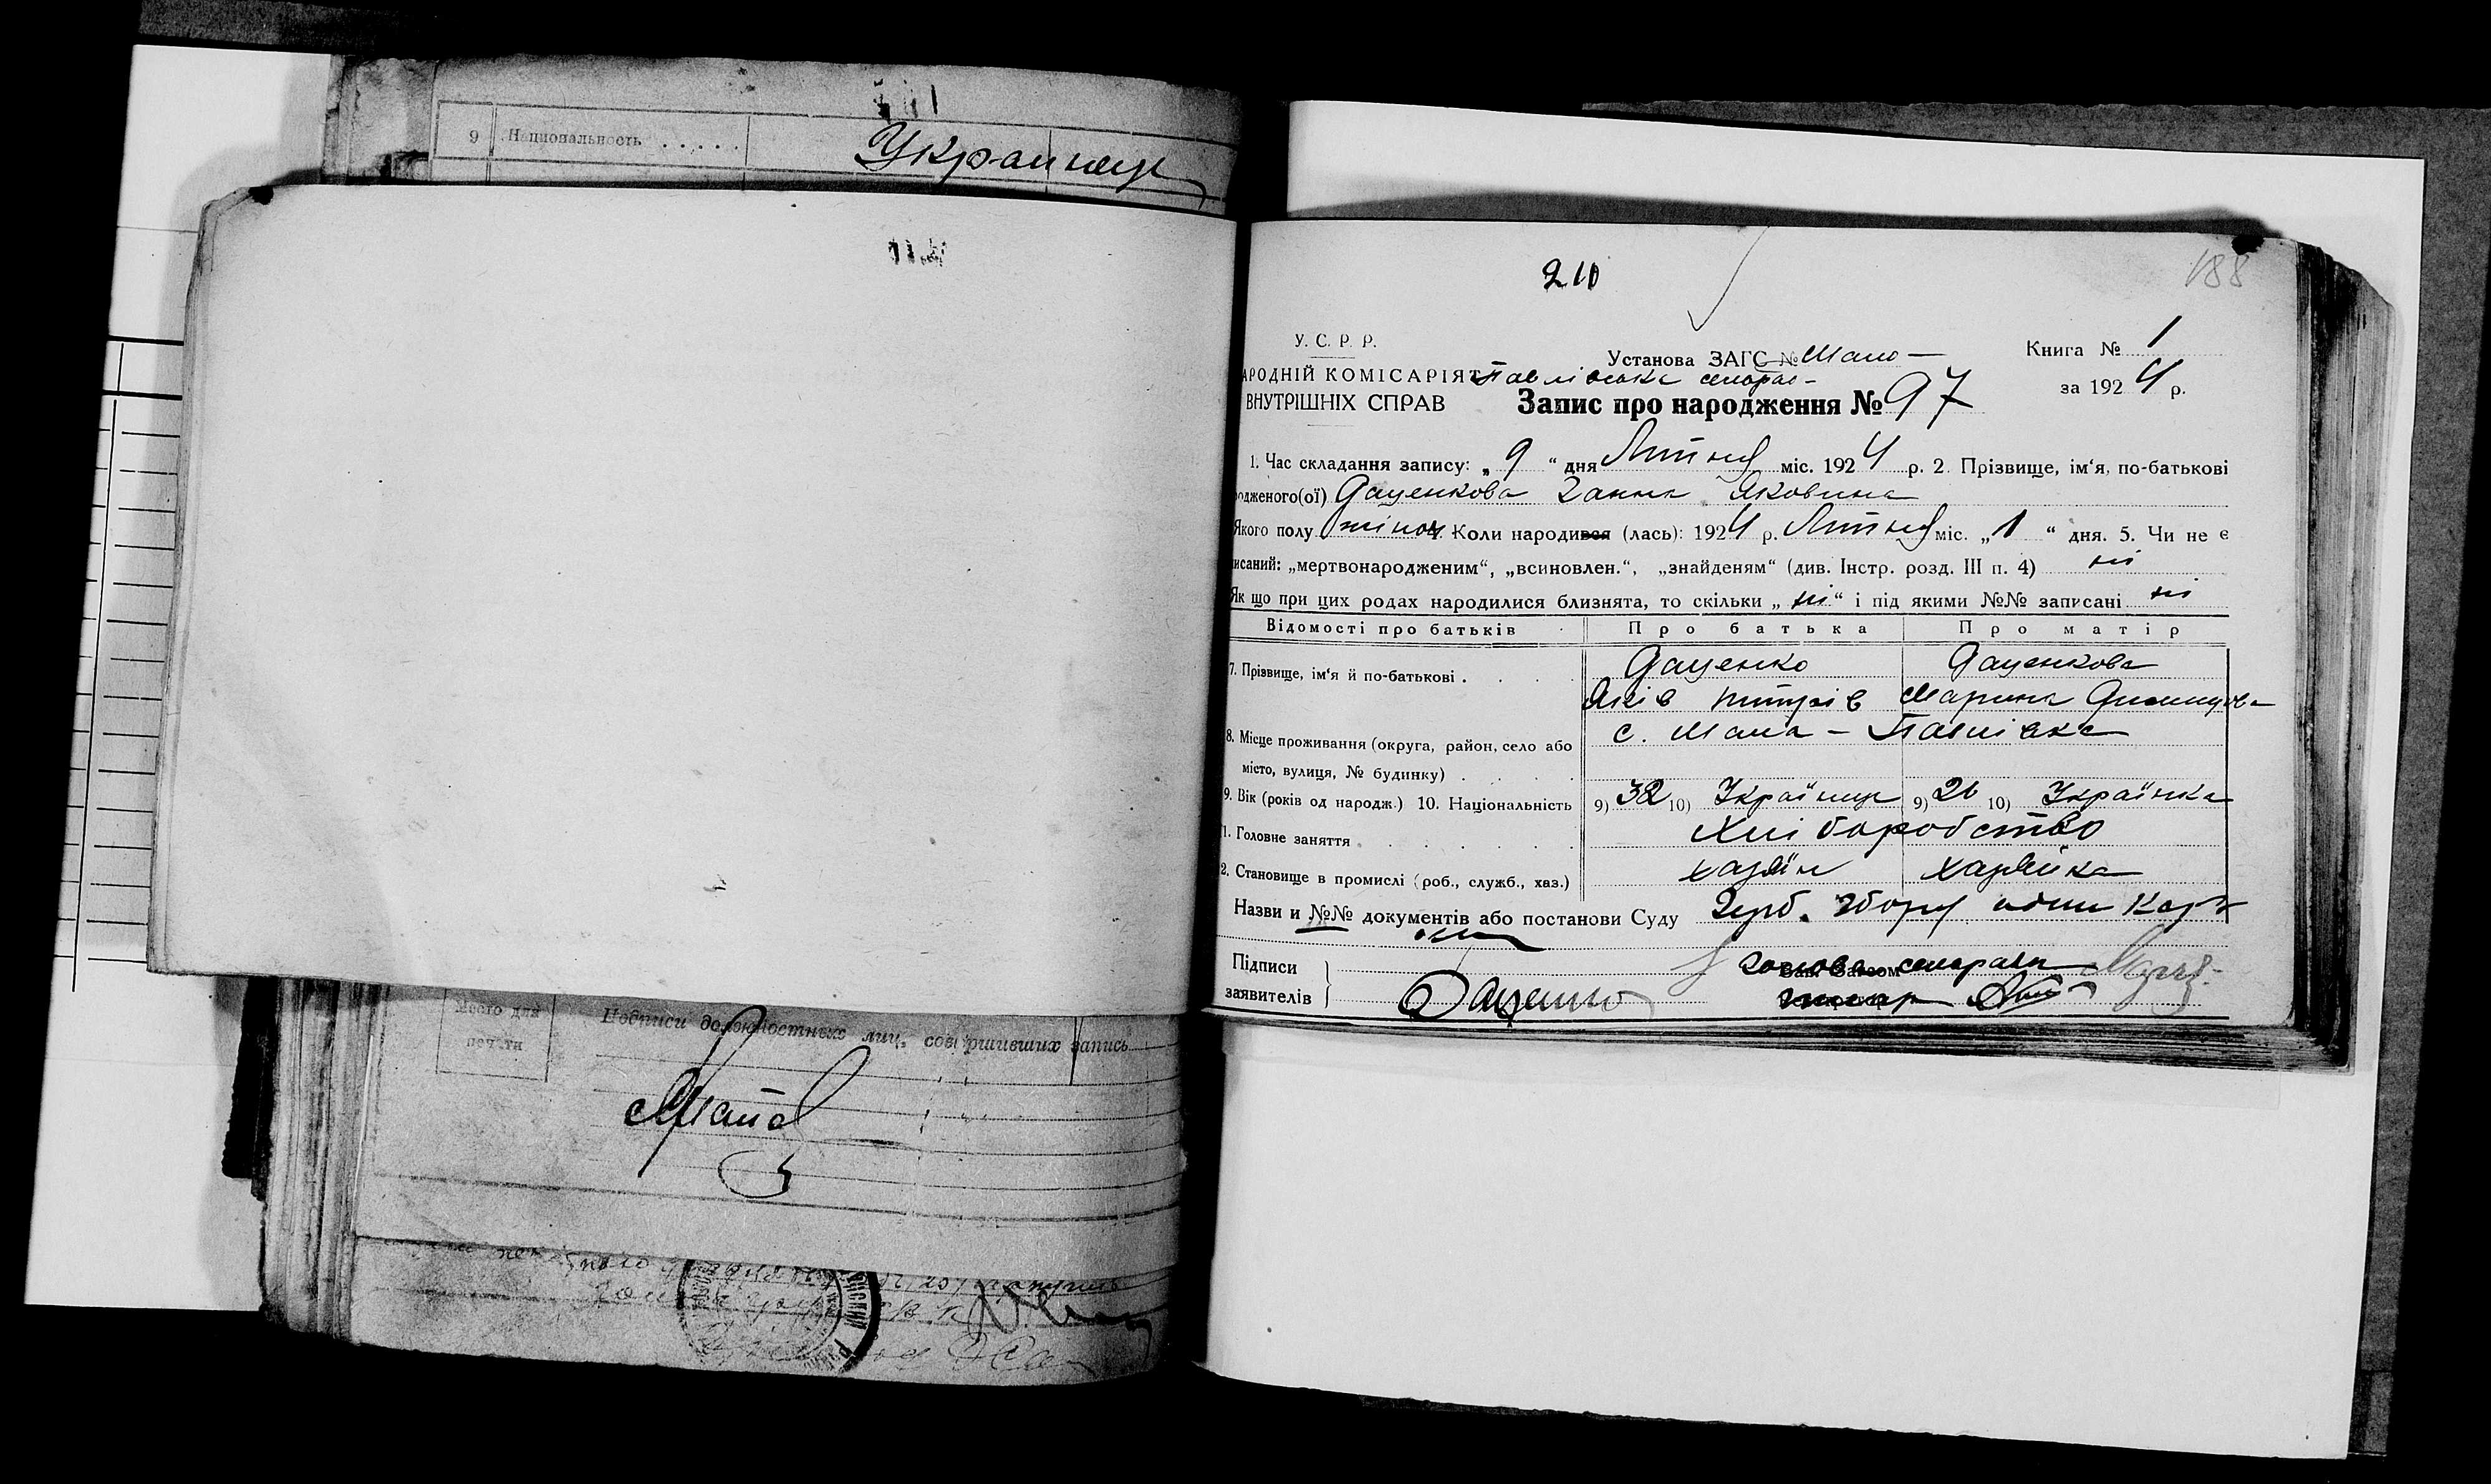 9 Национальность . . . . .
Украинец
Место для
печати
Подписи должностных лиц, совершивших запись
210
188
У. С. Р. Р.
Установа ЗАГС № Мало-
Книга № 1
АРОДНІЙ КОМІСАРІЯТ Павлівська сельрас-
за 1924 р.
ВНУТРІШНІХ СПРАВ
Запис про народження № 97
1. Час складання запису: „ 9 “ дня Лютня міс. 1924 р. 2. Прізвище, ім‘я, по-батькові
одженого(ої) Даценкова Ганна Яковина
Якого полу жіноч. 4. Коли народився (лась): 1924 р. Лютня міс. „ 1 “ дня. 5. Чи не є
писаний: „мертвонародженим“, „всиновлен.“, „знайденям“ (див. Інстр. розд. III п. 4) ні
Як що при цих родах народилися близнята, то скільки „ ні “ і під якими №№ записані ні
Відомості про батьків Про батька Про матір
7. Прізвище, ім‘я й по-батькові . . . .
Даценко Даценкова
Яків Марина
8. Місце проживання (округа, район, село або
місто, вулиця, № будинку) . . . .
с. Мала - Павлівка
9. Вік (років од народж.) 10. Національність 9) 32 10) Українець 9) 10) Українка
1. Головне заняття . . . . . . Хліборобство
2. Становище в промислі (роб., служб., хаз.) хазяїн хазяйка
Назви и №№ документів або постанови Суду Герб. збору один карб
Підписи
заявителів
Голова сельради
Даценко